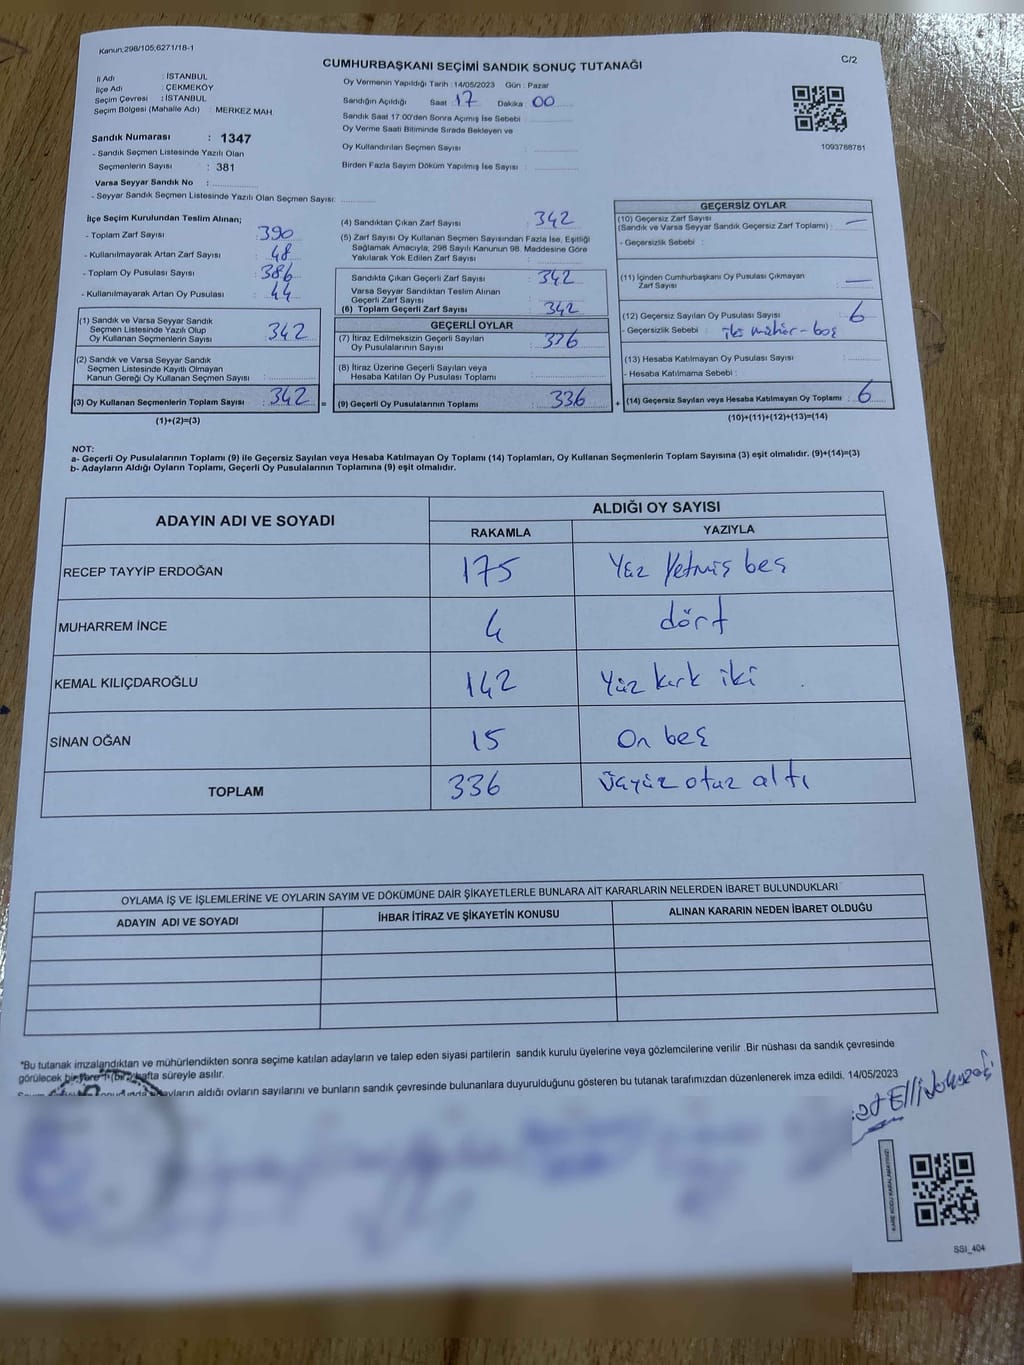 Kanun;298/105;6271/18-1
C/2
CUMHURBAŞKANI SEÇİMİ SANDIK SONUÇ TUTANAĞI
İl Adı : İSTANBUL
İlçe Adı : ÇEKMEKÖY
Seçim Çevresi : İSTANBUL
Seçim Bölgesi (Mahalle Adı) : MERKEZ MAH.
Sandık Numarası : 1347
- Sandık Seçmen Listesinde Yazılı Olan
Seçmenlerin Sayısı : 381
Varsa Seyyar Sandık No :
- Seyyar Sandık Seçmen Listesinde Yazılı Olan Seçmen Sayısı:
Oy Vermenin Yapıldığı Tarih : 14/05/2023 Gün : Pazar
Sandığın Açıldığı Saat : 17 Dakika : 00
Sandık Saat 17.00'den Sonra Açmış İse Sebebi :
Oy Verme Saati Bitiminde Sırada Bekleyen ve
Oy Kullandırılan Seçmen Sayısı :
Birden Fazla Sayım Döküm Yapılmış İse Sayısı :
1093788781
İlçe Seçim Kurulundan Teslim Alınan;
- Toplam Zarf Sayısı : 390
- Kullanılmayarak Artan Zarf Sayısı : 48
- Toplam Oy Pusulası Sayısı : 386
- Kullanılmayarak Artan Oy Pusulası : 44
(1) Sandık ve Varsa Seyyar Sandık
Seçmen Listesinde Yazılı Olup
Oy Kullanan Seçmenlerin Sayısı : 342
(2) Sandık ve Varsa Seyyar Sandık
Seçmen Listesinde Kayıtlı Olmayan
Kanun Gereği Oy Kullanan Seçmen Sayısı :
(3) Oy Kullanan Seçmenlerin Toplam Sayısı : 342 =
(1)+(2)=(3)
(4) Sandıktan Çıkan Zarf Sayısı : 342
(5) Zarf Sayısı Oy Kullanan Seçmen Sayısından Fazla İse, Eşitliği
Sağlamak Amacıyla, 298 Sayılı Kanunun 98. Maddesine Göre
Yakılarak Yok Edilen Zarf Sayısı :
Sandıkta Çıkan Geçerli Zarf Sayısı : 342
Varsa Seyyar Sandıktan Teslim Alınan
Geçerli Zarf Sayısı :
(6) Toplam Geçerli Zarf Sayısı : 342
GEÇERLİ OYLAR
(7) İtiraz Edilmeksizin Geçerli Sayılan
Oy Pusulalarının Sayısı : 336
(8) İtiraz Üzerine Geçerli Sayılan veya
Hesaba Katılan Oy Pusulası Toplamı :
(9) Geçerli Oy Pusulalarının Toplamı : 336 +
GEÇERSİZ OYLAR
(10) Geçersiz Zarf Sayısı
(Sandık ve Varsa Seyyar Sandık Geçersiz Zarf Toplamı) : —
- Geçersizlik Sebebi :
(11) İçinden Cumhurbaşkanı Oy Pusulası Çıkmayan
Zarf Sayısı : —
(12) Geçersiz Sayılan Oy Pusulası Sayısı : 6
- Geçersizlik Sebebi : iki mühür-boş
(13) Hesaba Katılmayan Oy Pusulası Sayısı :
- Hesaba Katılmama Sebebi :
(14) Geçersiz Sayılan veya Hesaba Katılmayan Oy Toplamı : 6
(10)+(11)+(12)+(13)=(14)
NOT:
a- Geçerli Oy Pusulalarının Toplamı (9) ile Geçersiz Sayılan veya Hesaba Katılmayan Oy Toplamı (14) Toplamları, Oy Kullanan Seçmenlerin Toplam Sayısına (3) eşit olmalıdır. (9)+(14)=(3)
b- Adayların Aldığı Oyların Toplamı, Geçerli Oy Pusulalarının Toplamına (9) eşit olmalıdır.
ADAYIN ADI VE SOYADI
ALDIĞI OY SAYISI
RAKAMLA YAZIYLA
RECEP TAYYİP ERDOĞAN 175 Yüz Yetmiş beş
MUHARREM İNCE 4 dört
KEMAL KILIÇDAROĞLU 142 Yüz kırk iki
SİNAN OĞAN 15 On beş
TOPLAM 336 Üçyüz otuz altı
OYLAMA İŞ VE İŞLEMLERİNE VE OYLARIN SAYIM VE DÖKÜMÜNE DAİR ŞİKAYETLERLE BUNLARA AİT KARARLARIN NELERDEN İBARET BULUNDUKLARI
ADAYIN ADI VE SOYADI İHBAR İTİRAZ VE ŞİKAYETİN KONUSU ALINAN KARARIN NEDEN İBARET OLDUĞU
*Bu tutanak imzalandıktan ve mühürlendikten sonra seçime katılan adayların ve talep eden siyasi partilerin sandık kurulu üyelerine veya gözlemcilerine verilir .Bir nüshası da sandık çevresinde
görülecek bir yere 1 (bir) hafta süreyle asılır.
aldığı oyların sayılarını ve bunların sandık çevresinde bulunanlara duyurulduğunu gösteren bu tutanak tarafımızdan düzenlenerek imza edildi. 14/05/2023
KARE KODU KARALAMAYINIZ!
SSI_404